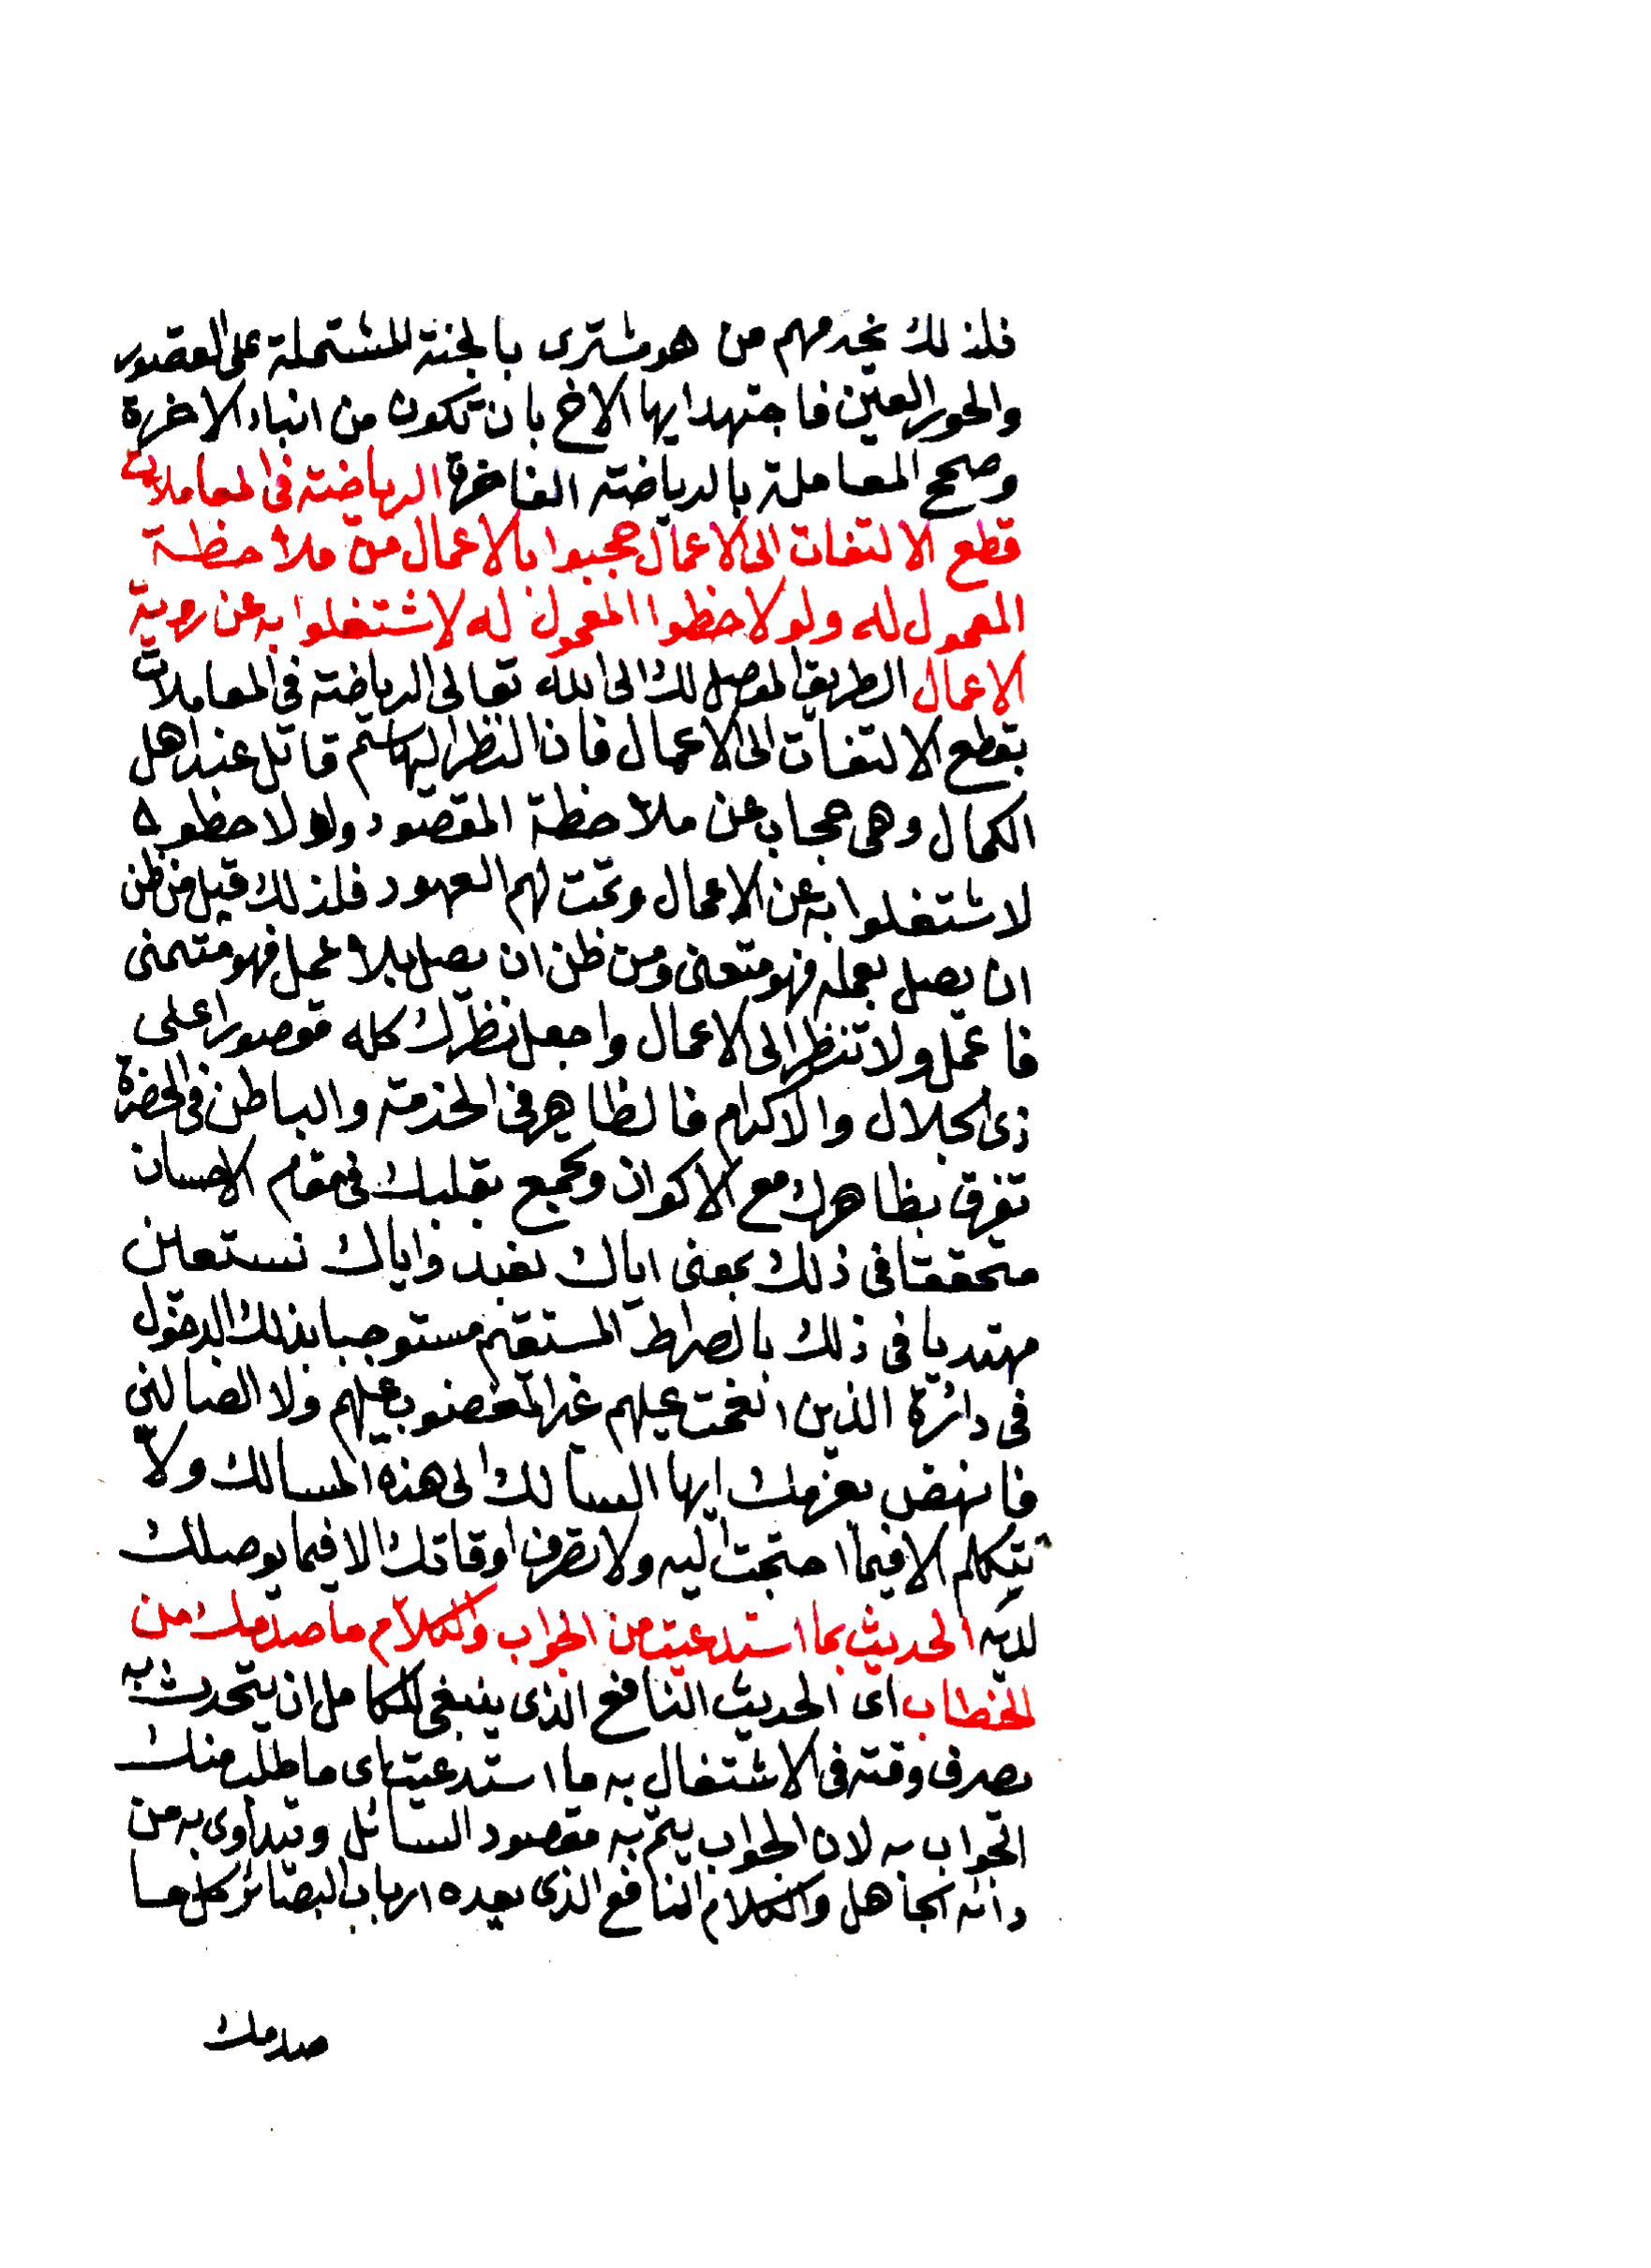 فلذلك يخدمهم من هو مشترى بالجنة المشتملة على القصور
والحور العين فاجتهد ايها الاخ بان تكون من ابناء الاخرة
وصحح المعاملة بالرياضة الفاخرة الرياضة فى المعاملات
قطع الالتفات الى الاعمال حجبوا بالاعمال من ملاحظة
المعمول له ولو لاحظوا المعمول له لاشتغلوا به عن روية
الاعمال الطريق الموصل لك الى الله تعالى الرياضة فى المعاملات
بقطع الالتفات الى الاعمال فان النظر اليها سم قاتل عند اهل
الكمال وهى حجاب عن ملاحظة المقصود ولو لاحظوه
لاشتغلوا به عن الاعمال وتمت لهم العهود فلذلك قيل من ظن
ان يصل بعمله فهو متعنى ومن ظن ان يصل بلا عمل فهو متمنى
فاعمل ولا تنظر الى الاعمال واجعل نظرك كله مقصورا على
ذى الجلال والاكرام فالظاهر فى الخدمة والباطن فى الحضرة
تفرق بظاهرك مع الاكوان وتجمع بقلبك فى مقام الاحسان
متحققا فى ذلك بمعنى اياك نعبد واياك نستعين
مهتديا فى ذلك بالصراط المستقيم مستوجبا بذلك الدخول
فى دائرة الذين انعمت عليهم غير المغضوب عليهم ولا الضالين
فانهض بعزمك ايها السالك الى هذه المسالك ولا
تتكلم الا فيما احتجت اليه ولا تصرف اوقاتك الا فيما يوصلك
لديه الحديث بما استدعيت من الجواب والكلام ما صدمك من
الخطاب اى الحديث النافع الذى ينبغى للكامل ان يتحدث به
يصرف وقته فى الاشتغال به ما استدعيت اى ما طلب منك
الجواب به لان الجواب يتم به مقصود السائل ويتداوى به من
دائه الجاهل والكلام النافع الذى يعده ارباب البصائر كل ما
صدمك